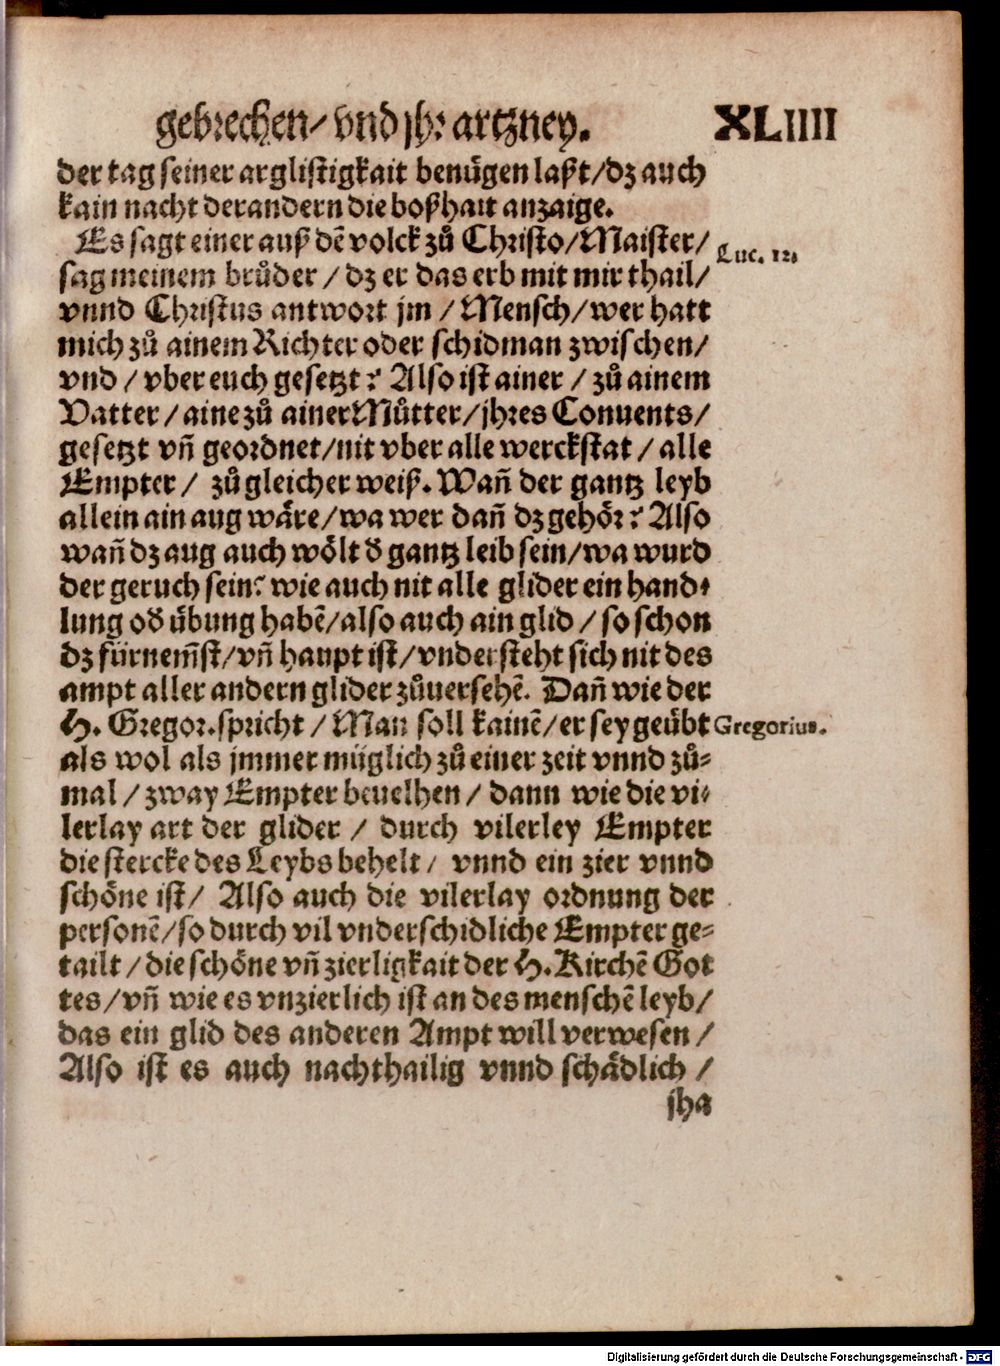 gebrechen/ vnd jhr artzney. XLIIII
der tag seiner arglistigkait benügen laßt/dz auch
kain nacht der andern die boßhait anzaige.
Es sagt einer auß dē volck zů Christo/Maister/
Luc. 12.
sag meinem brůder / dz er das erb mit mir thail/
vnnd Christus antwort jm / Mensch/wer hatt
mich zů ainem Richter oder schidman zwischen/
vnd / vber euch gesetzt? Also ist ainer / zů ainem
Vatter / aine zů ainer Můtter/jhres Conuents/
gesetzt vñ geordnet/nit vber alle werckstat / alle
Empter / zů gleicher weiß. Wañ der gantz leyb
allein ain aug wäre/wa wer dañ dz gehör? Also
wañ dz aug auch wölt ð gantz leib sein/wa wurd
der geruch sein? wie auch nit alle glider ein hand-
lung oð übung habē/also auch ain glid / so schon
dz fürnem̃st/vñ haupt ist/vndersteht sich nit des
ampt aller andern glider zůuersehē. Dañ wie der
H. Gregor. spricht / Man soll kainē/er sey geübt
Gregorius.
als wol als jmmer müglich zů einer zeit vnnd zů-
mal / zway Empter beuelhen / dann wie die vi-
lerlay art der glider / durch vilerley Empter
die stercke des Leybs behelt / vnnd ein zier vnnd
schöne ist/ Also auch die vilerlay ordnung der
personē/so durch vil vnderschidliche Empter ge-
tailt / die schöne vñ zierligkait der H. Kirchē Got
tes/vñ wie es vnzierlich ist an des menschē leyb/
das ein glid des anderen Ampt will verwesen /
Also ist es auch nachthailig vnnd schädlich /
sha
Digitalisierung gefördert durch die Deutsche Forschungsgemeinschaft - DFG